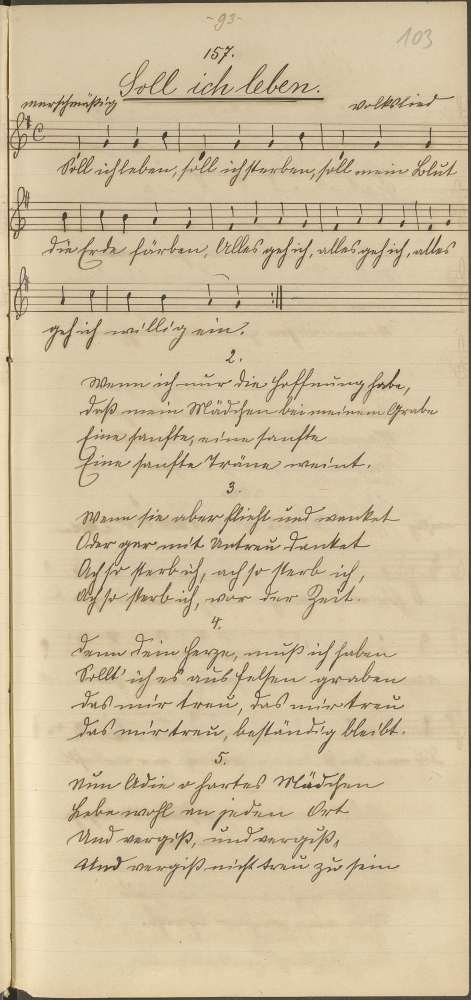 -93-
103
157.
Soll ich leben.
marschmäßig
Volkslied
Soll ich leben, soll ich sterben, soll mein Blut
die Erde färben, Alles geh ich, alles geh ich, alles
geh ich willig ein.
2.
Wenn ich nur die Hoffnung habe,
daß mein Mädchen bei meinem Grabe
Eine sanfte, eine sanfte
Eine sanfte Träne weint.
3.
Wenn sie aber flieht und wanket
Oder gar mit Untreu danket
Ach so sterb ich, ach so sterb ich,
Ach so sterb ich, vor der Zeit.
4.
Denn dein Herze, muß ich haben
Sollt' ich es aus Felsen graben
das mir treu, das mir treu
das mir treu, beständig bleibt.
5.
Nun Adie o hartes Mädchen
Lebe wohl an jeden Ort
Und vergiß, und vergiß,
Und vergiß nicht treu zu sein